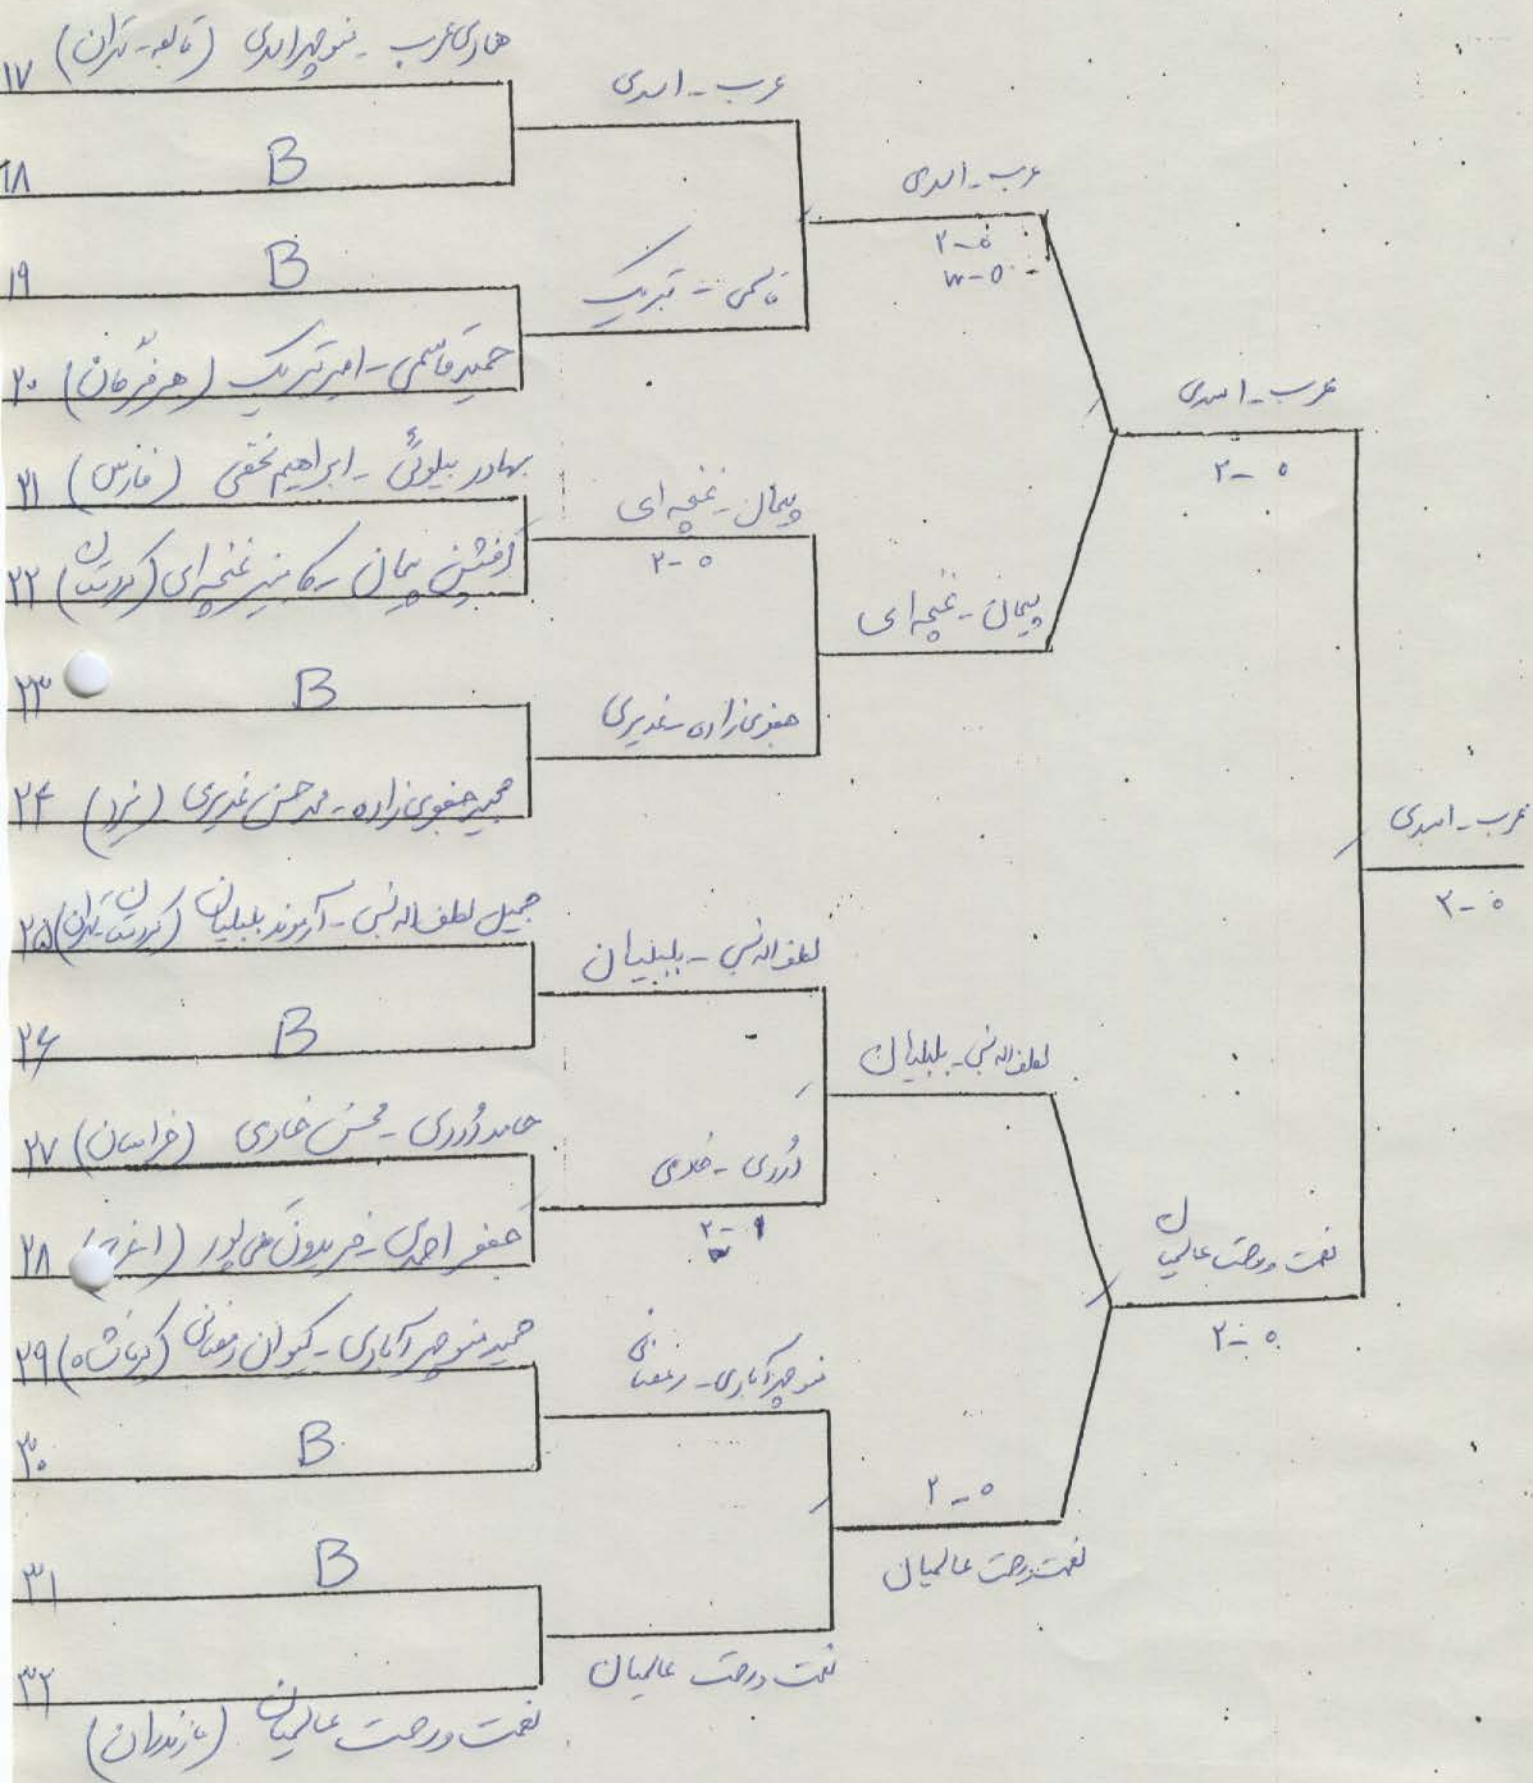 ۱۷ هادی عرب - منوچهر اسدی ( - تهران)
۱۸ B
۱۹ B
۲۰ حمید قاسمی - امیر تبریک (هرمزگان)
۲۱ بهادر بیلوئی - ابراهیم نجفی (فارس)
۲۲ افشین پیمان - کامبیز غنچه‌ای (کردستان)
۲۳ B
۲۴ مجید جعفری‌زاده - محمد حسن غدیری (یزد)
۲۵ جمیل لطف‌اله نسبی - آرموند بلبلیان (کردستان - تهران)
۲۶ B
۲۷ حامد دُرری - محسن (خراسان)
۲۸ جعفر احمدی - فریدون
۲۹ حمید منوچهرآبادی - کیوان رمضانی (کرمانشاه)
۳۰ B
۳۱ B
۳۲ نعمت و رحمت عالمیان (مازندران)
عرب - اسدی
قاسمی - تبریک
پیمان - غنچه‌ای
۲-۰
جعفری‌زاده - غدیری
لطف‌اله نسبی - بلبلیان
دُرری -
۲-۱
منوچهرآبادی - رمضانی
نعمت و رحمت عالمیان
عرب - اسدی
۲-۰
پیمان - غنچه‌ای
لطف‌اله نسبی - بلبلیان
۲-۰
نعمت و رحمت عالمیان
عرب - اسدی
۲-۰
نعمت و رحمت عالمیان
۲-۰
عرب - اسدی
۲-۰